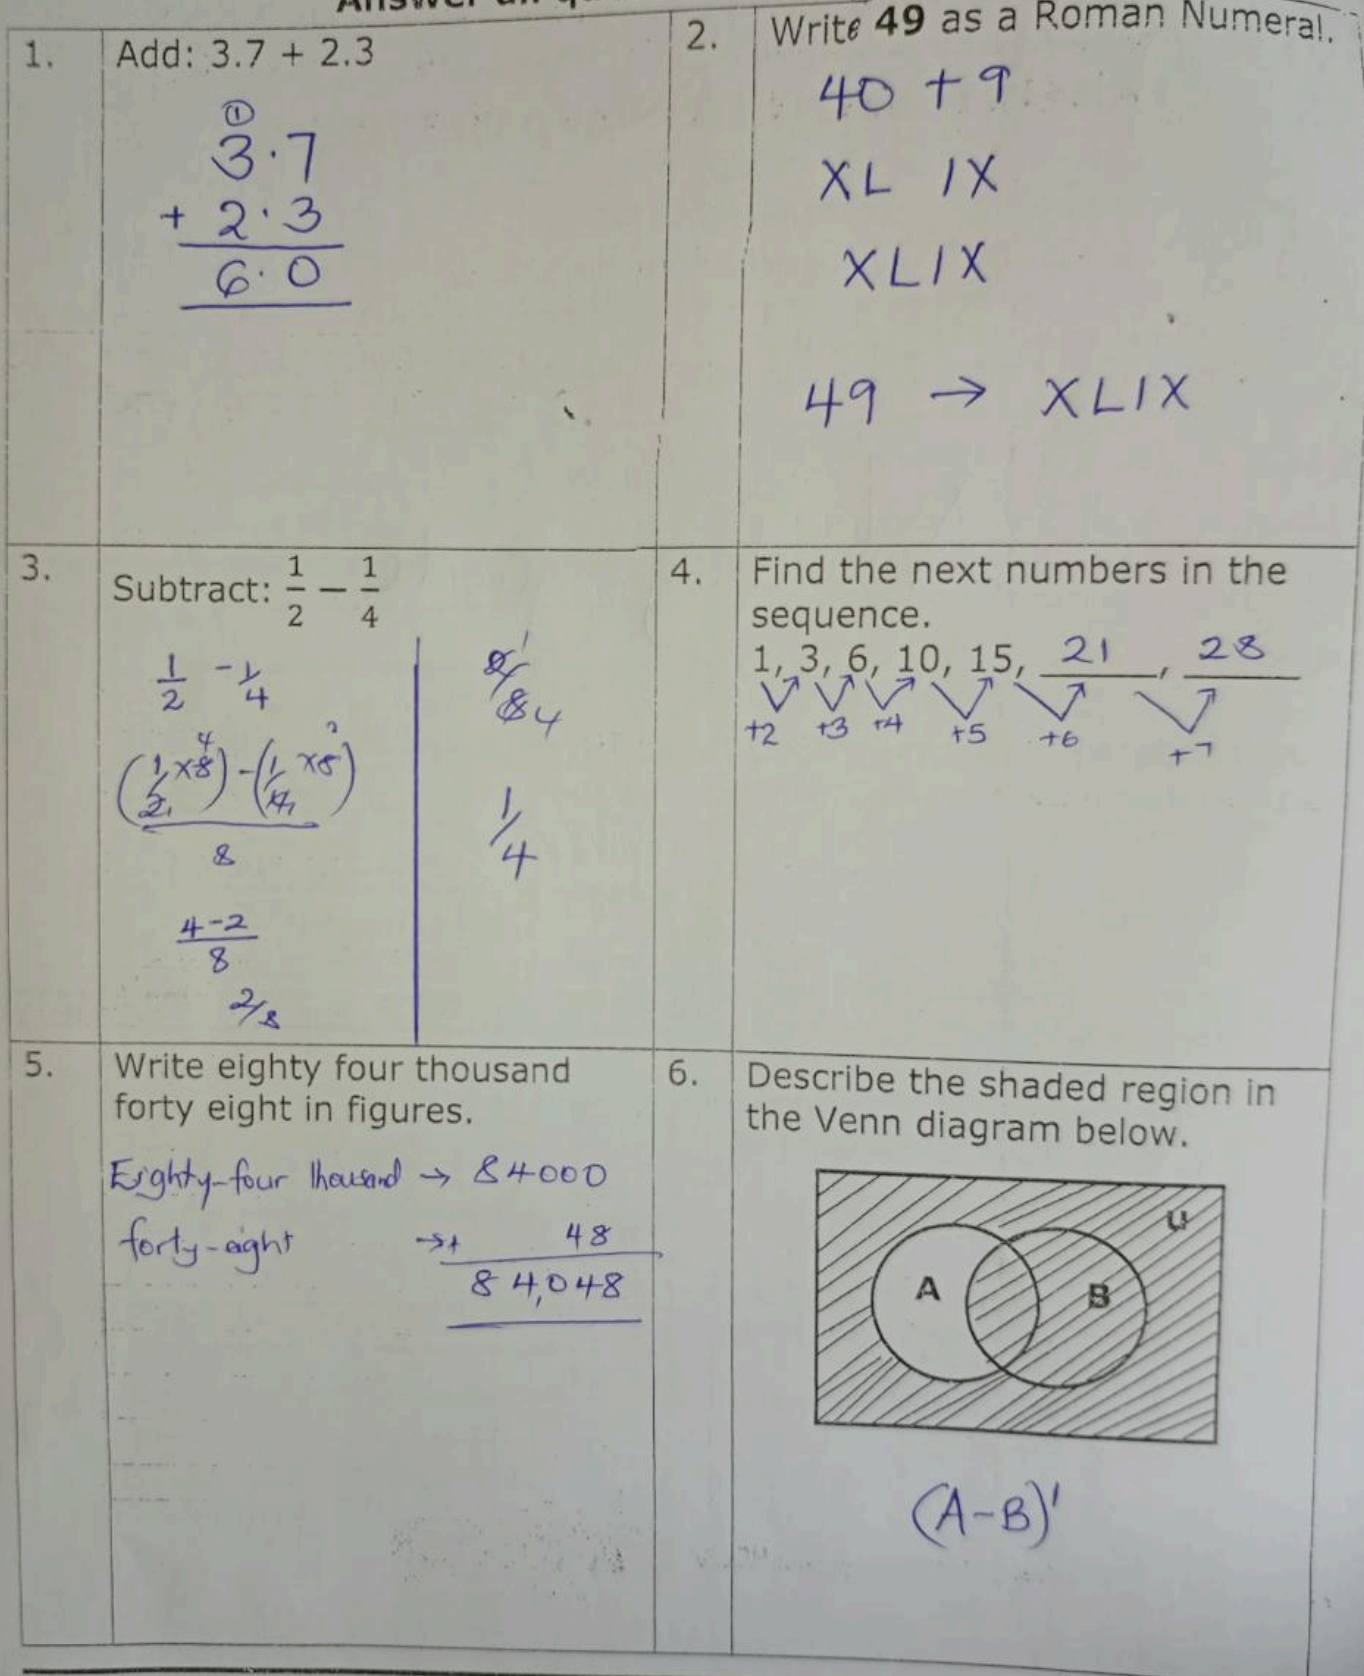 1. Add: 3.7 + 2.3
①
3.7
+ 2.3
6.0
2. Write 49 as a Roman Numeral.
40 + 9
XL IX
XLIX
49 → XLIX
3. Subtract: 1/2 − 1/4
1/2 - 1/4
4 2
(1/2 × 8) - (1/4 × 8)
1 1
8
4-2
8
2/8
2/8 1 4
1/4
4. Find the next numbers in the
sequence.
1, 3, 6, 10, 15, 21, 28
+2 +3 +4 +5 +6 +7
5. Write eighty four thousand
forty eight in figures.
Eighty-four thousand → 84000
forty-eight →+ 48
84,048
6. Describe the shaded region in
the Venn diagram below.
U
A B
(A-B)'